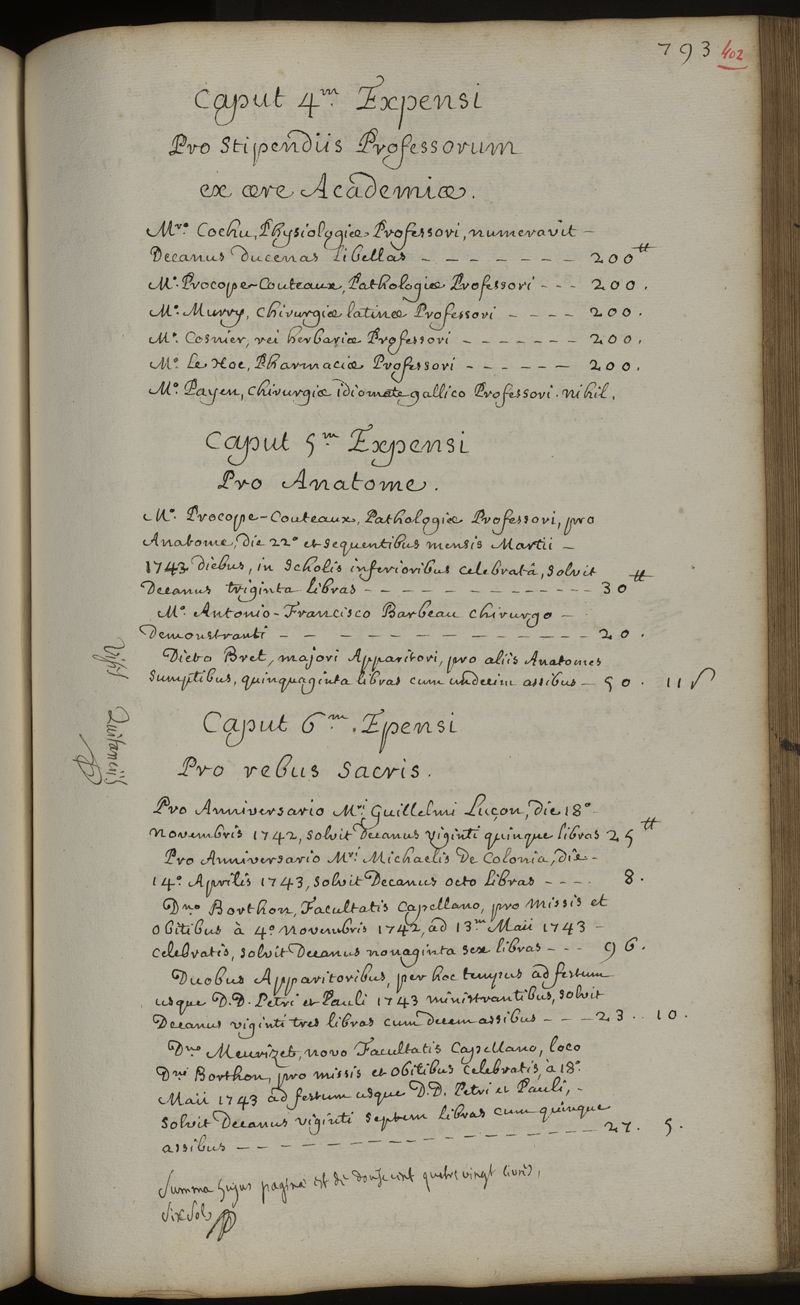 793 402
Caput 4m. Expensi
Pro Stipendiis Professorum
ex ære Academiæ.
Mro. Cochu, Physiologiæ Professori, numeravit —
Decanus ducenas libellas — — — — — — — 200tt
Mo. Procope-Couteaux, Pathologiæ Professori - - - 200.
Mo. Murry, Chirurgiæ latinæ Professori — — — — 200.
Mo. Cosnier, rei herbariæ Professori — — — — — — — 200.
Mo. Le Hoc, Pharmaciæ Professori — — — — — — 200.
Mo. Payen, Chirurgiæ idiomate gallico Professori. nihil.
Caput 5m. Expensi
Pro Anatome.
Mo. Procope-Couteaux, Pathologiæ Professori, pro
Anatome, die 22o et sequentibus mensis Martii —
1743 diebus, in Scholis inferioribus celebratâ, solvit
Decanus triginta libras — — — — — — — — — — — — 30tt
Mo. Antonio-Francisco Barbeau Chirurgo —
Demonstranti — — — — — — — — — — — — 20.
Dicto Bret, majori Apparitori, pro aliis Anatomes
Sumptibus, quinquaginta libras cum undecim assibus — 50. 11 s
Visis
Quitanciis
Caput 6m. Epensi
Pro rebus Sacris.
Pro Anniversario Mri Guillelmi Luçon, die 18o
novembris 1742, solvit Decanus viginti quinque libras 25tt
Pro Anniversario Mri Michaelis De Colonia, die —
14o Aprilis 1743, solvit Decanus octo libras — — — . 8.
Dno Borthon, Facultatis Capellano, pro missis et
obitibus à 4o novembris 1742, ad 13m Maii 1743 —
celebratis, solvit Decanus nonaginta sex libras — — — 96.
Duobus Apparitoribus, per hoc tempus ad festum
usque D.D. Petri et Pauli 1743 ministrantibus, solvit
Decanus viginti tres libras cum decem assibus — — — 23 . . 10.
Dno Meurizet, novo Facultatis Capellano, loco
Dni Borthon, pro missis et obitibus celebratis, à 18o.
Maii 1743 ad festum usque D.D. Petri et Pauli, -
solvit Decanus viginti septem libras cum quinque
assibus — — — — — — — — — — — — — — 27. 5.
Summa hujus paginæ est de douze cent quatre vingt livres,
six sols